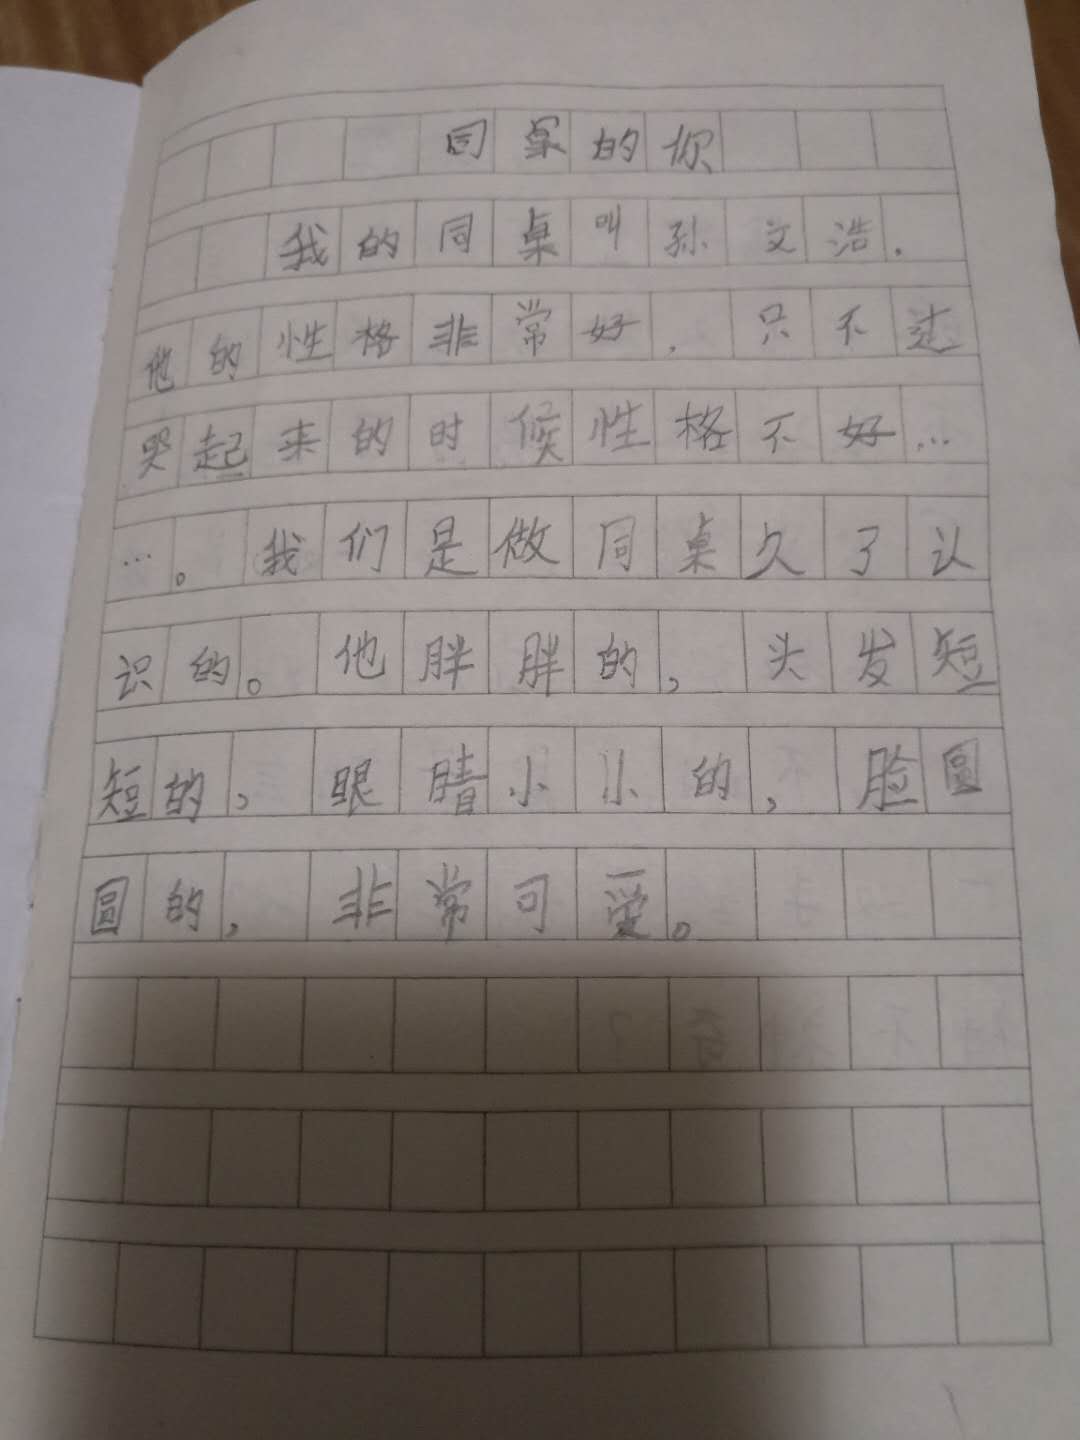 同桌的你
我的同桌叫孙文浩.
他的性格非常好,只不过
哭起来的时候性格不好…
…。我们是做同桌久了认
识的。他胖胖的,头发短
短的,眼睛小小的,脸圆
圆的,非常可爱。